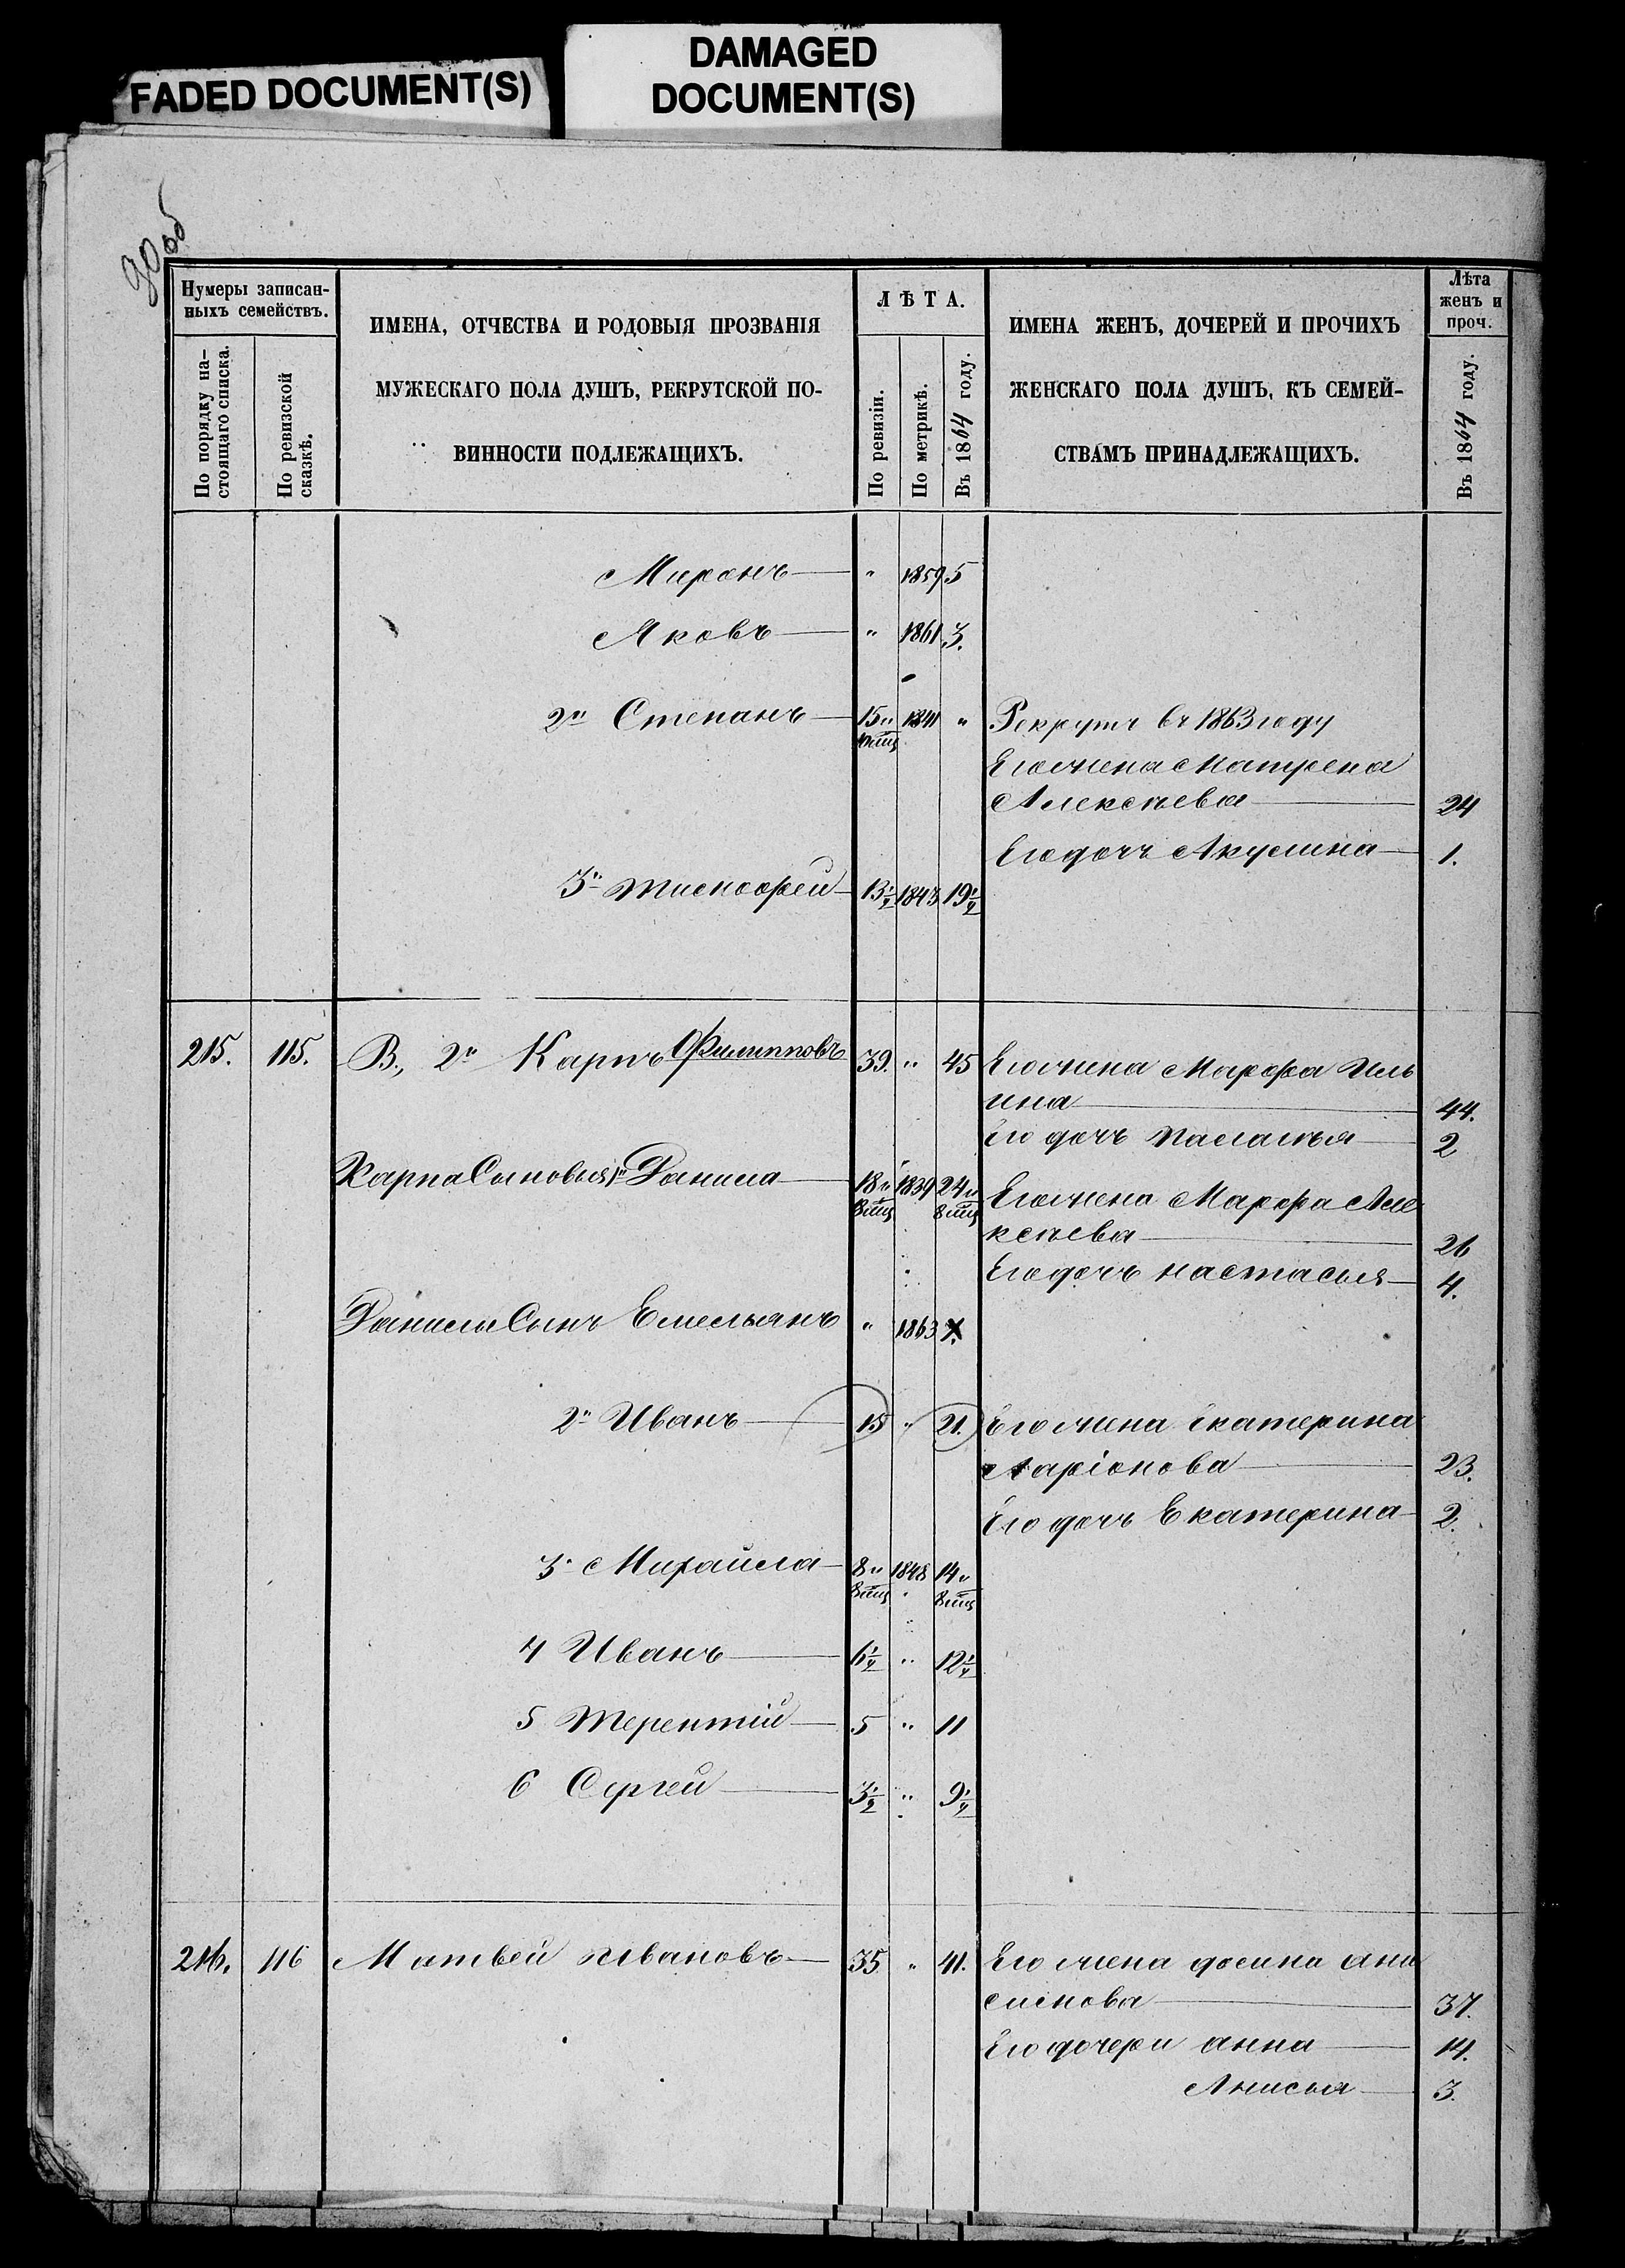 FADED DOCUMENT(S)
DAMAGED
DOCUMENT(S)
90 об
Нумеры записан-
ныхъ семействъ.
По порядку на-
стоящаго списка.
По ревизской
сказкѣ.
ИМЕНА, ОТЧЕСТВА И РОДОВЫЯ ПРОЗВАНІЯ
МУЖЕСКАГО ПОЛА ДУШЪ, РЕКРУТСКОЙ ПО-
ВИННОСТИ ПОДЛЕЖАЩИХЪ.
ЛѢТА.
По ревизіи.
По метрикѣ.
Въ 1864 году.
ИМЕНА ЖЕНЪ, ДОЧЕРЕЙ И ПРОЧИХЪ
ЖЕНСКАГО ПОЛА ДУШЪ, КЪ СЕМЕЙ-
СТВАМЪ ПРИНАДЛЕЖАЩИХЪ.
Лѣта
женъ и
проч.
Въ 1864 году.
Миронъ — " 1859 5
Яковъ — " 1861 3.
2й Степанъ — 15 " 1841 " Рекрутъ въ 1863 году
Его жена Матрена
Алексѣева — 24
Его дочь Акулина — 1.
3й Тимофей — 13½ 1843 19½
215. 115. В., 2й Карпъ Филипповъ 39. " 45 Его жена Марфа Иль
ина — 44.
Его дочь Паланья — 2
Карпа Сыновья 1й Данила — 18 " 8 мцъ 1839 24 " 8 мцъ Его жена Марфа Але
ксѣева — 26
Его дочь Настасья — 4.
Данилы Сынъ Емельянъ " 1863
2й Иванъ — 15 " 21. Его жена Екатерина
Ларіонова — 23.
Его дочь Екатерина — 2.
3й Михайла — 8 " 8 мцъ 1848 14 " 8 мцъ
4 Иванъ — 6½ " 12½
5 Терентій — 5 " 11
6 Сергей — 3½ " 9½
216. 116 Матвей Ивановъ — 35 " 41. Его жена
37.
Его дочери Анна — 14.
Анисья — 3.